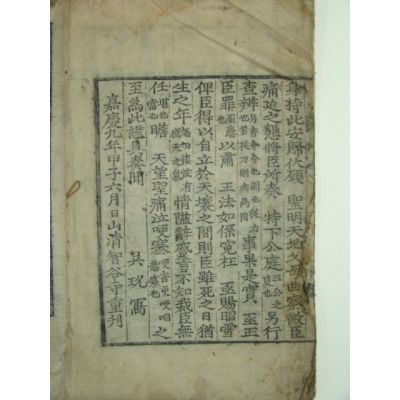 身持此安歸伏願 聖明天地父母曲察微臣
痛迫之懇將臣所奏 特下公庭三公之庭也另行
查辨事果是實 亟正
臣罪亟急也以肅 王法如係寃枉 亟賜昭雪
俾臣得以自立於天壤之間則臣雖死之日猶
生之年情隘辭蹙言不知裁臣無
任堪也當也瞻 天望聖痛泣哽塞
至為此謹具奏聞 吳 寫
嘉慶九年甲子六月日山清智谷寺重刋